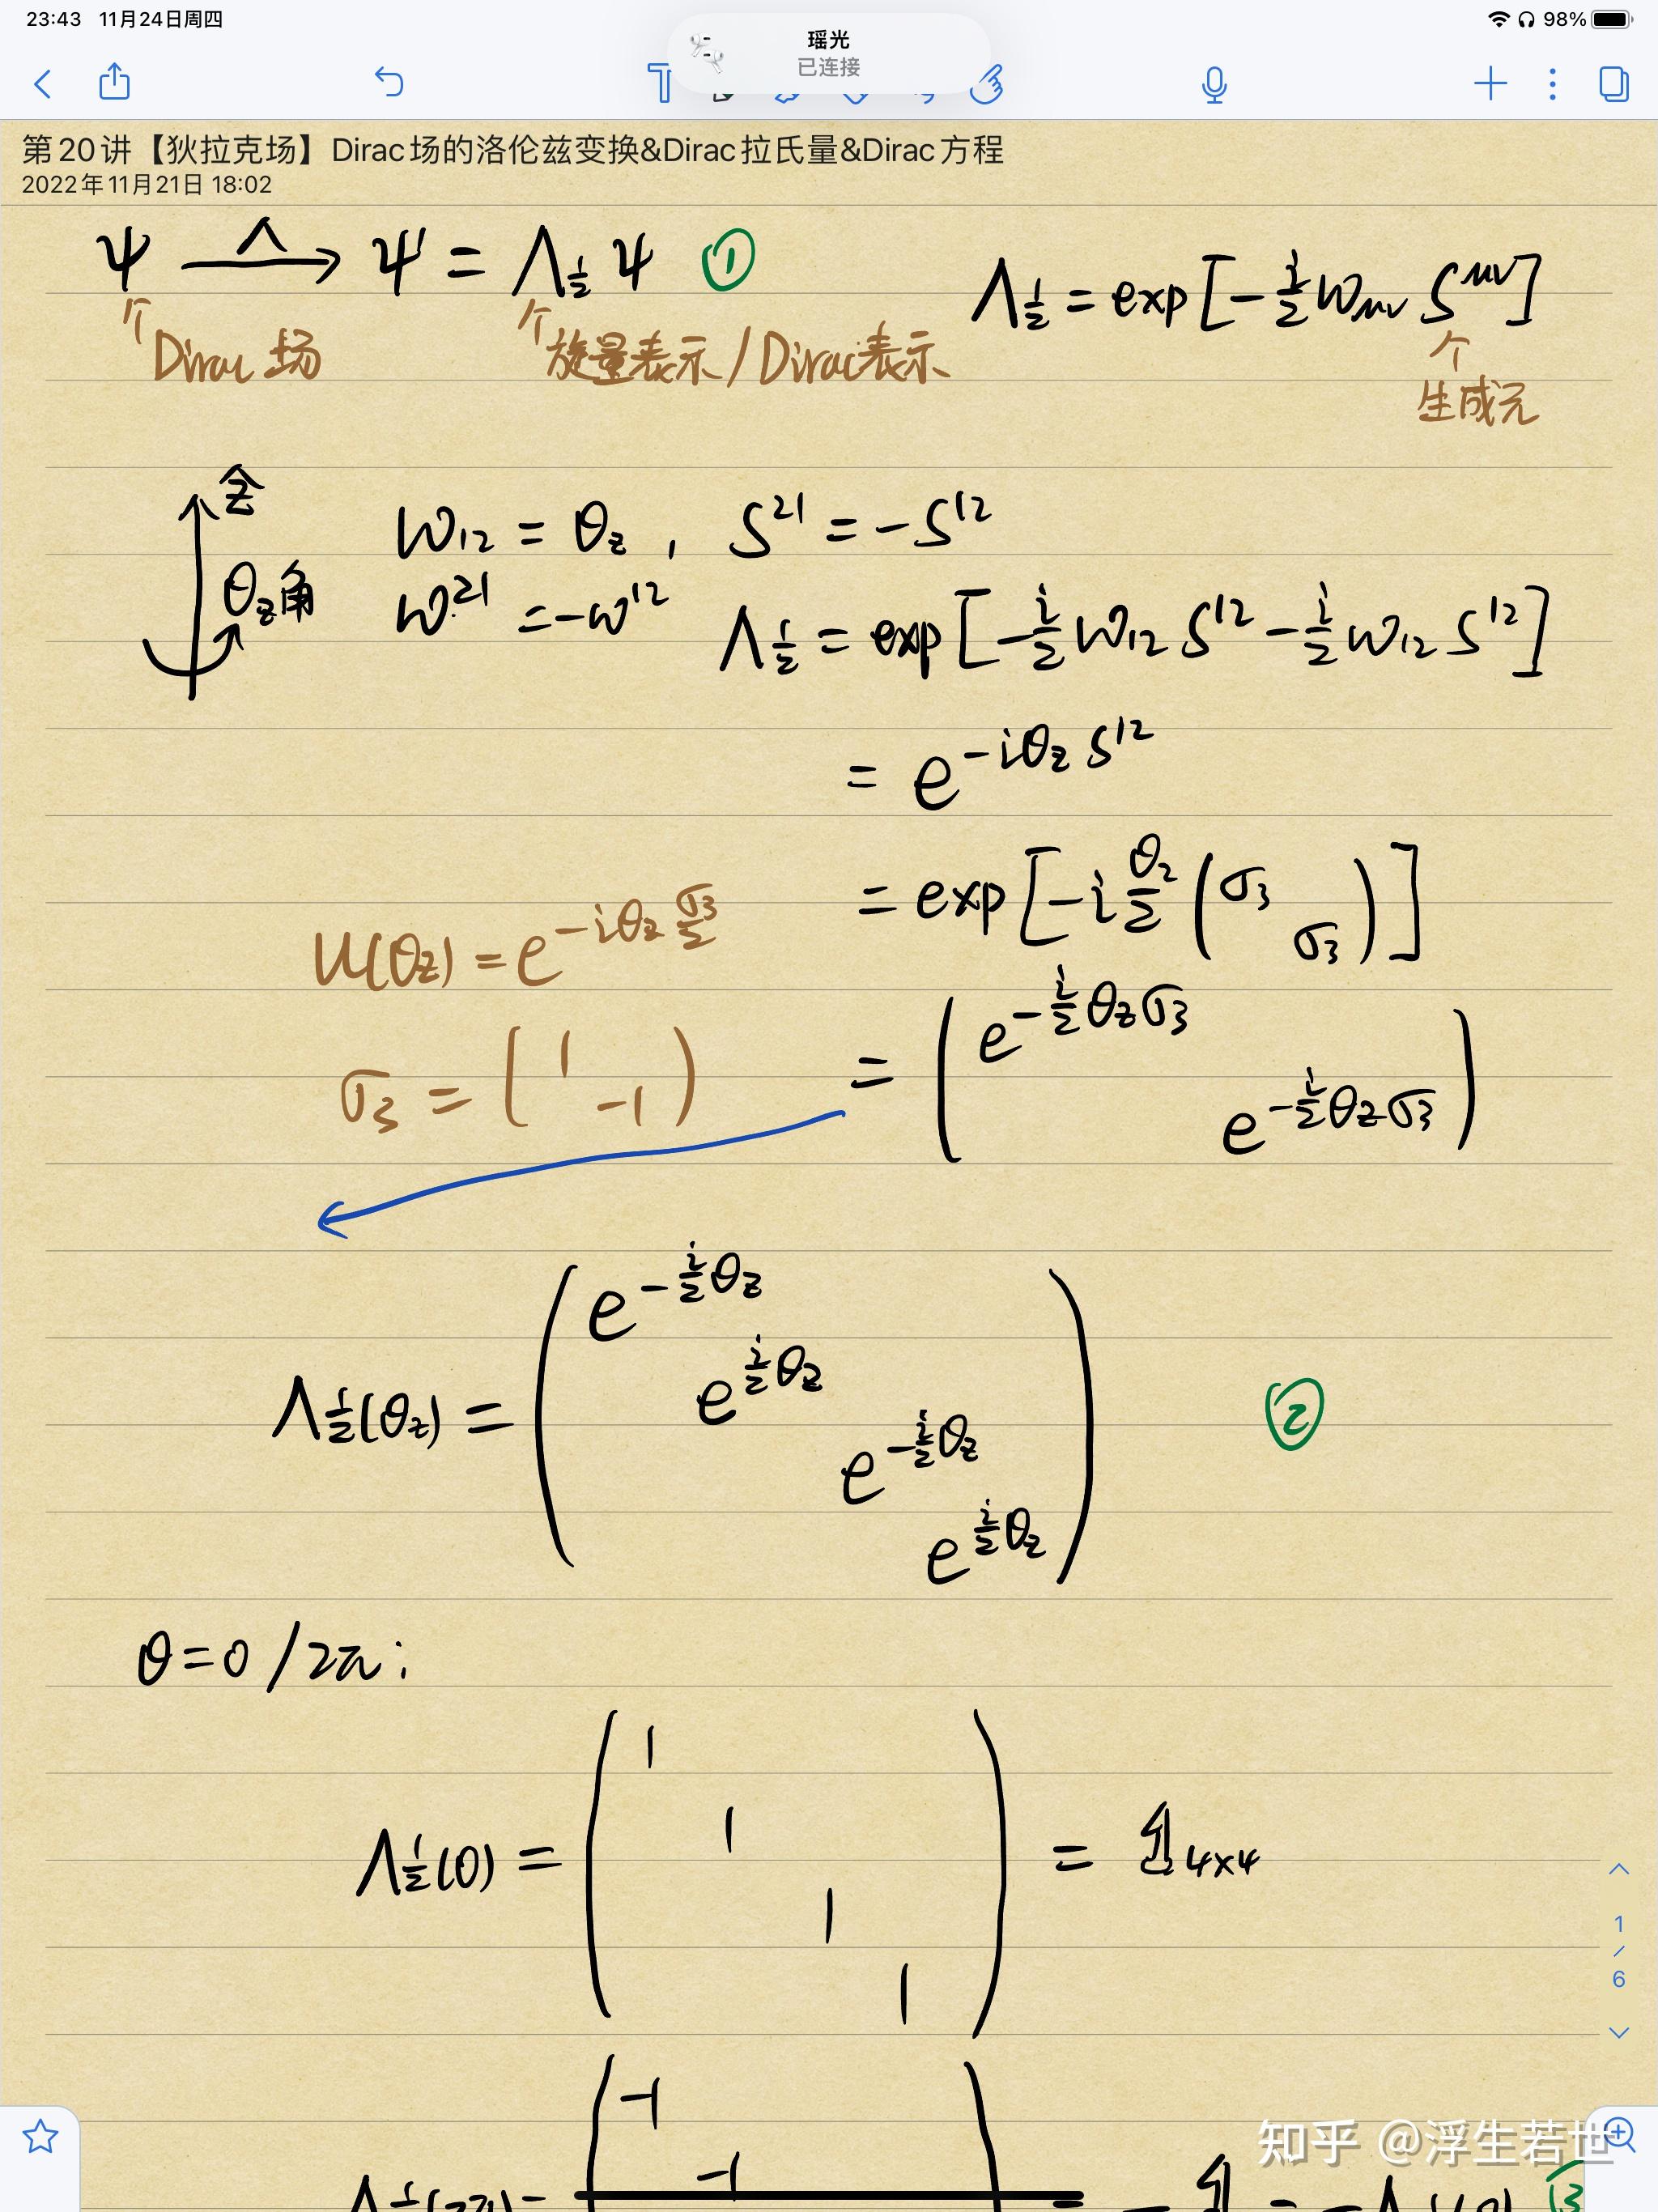 23:43 11月24日周四
98%
瑶光
已连接
第20讲【狄拉克场】Dirac场的洛伦兹变换&Dirac拉氏量&Dirac方程
2022年11月21日 18:02
ψ —Λ→ ψ' = Λ_{1/2} ψ ①
Λ_{1/2} = exp[-i/2 ω_{μν} S^{μν}]
↑ Dirac场
↑ 旋量表示/Dirac表示
↑ 生成元
z
θ_z角
ω_{12} = θ_z , S^{21} = -S^{12}
ω^{21} = -ω^{12}
Λ_{1/2} = exp[-i/2 ω_{12} S^{12} - i/2 ω_{12} S^{12}]
= e^{-iθ_z S^{12}}
= exp[-i θ_z/2 (σ_3 σ_3)]
U(θ_z) = e^{-iθ_z σ_3/2}
σ_3 = (1 -1)
= (e^{-i/2 θ_z σ_3} e^{-i/2 θ_z σ_3})
Λ_{1/2}(θ_z) = (e^{-i/2 θ_z} e^{i/2 θ_z} e^{-i/2 θ_z} e^{i/2 θ_z}) ②
θ=0/2π:
Λ_{1/2}(0) = (1 1 1 1) = 𝟙_{4×4}
1
/
6
-1
-1
知乎 @浮生若世